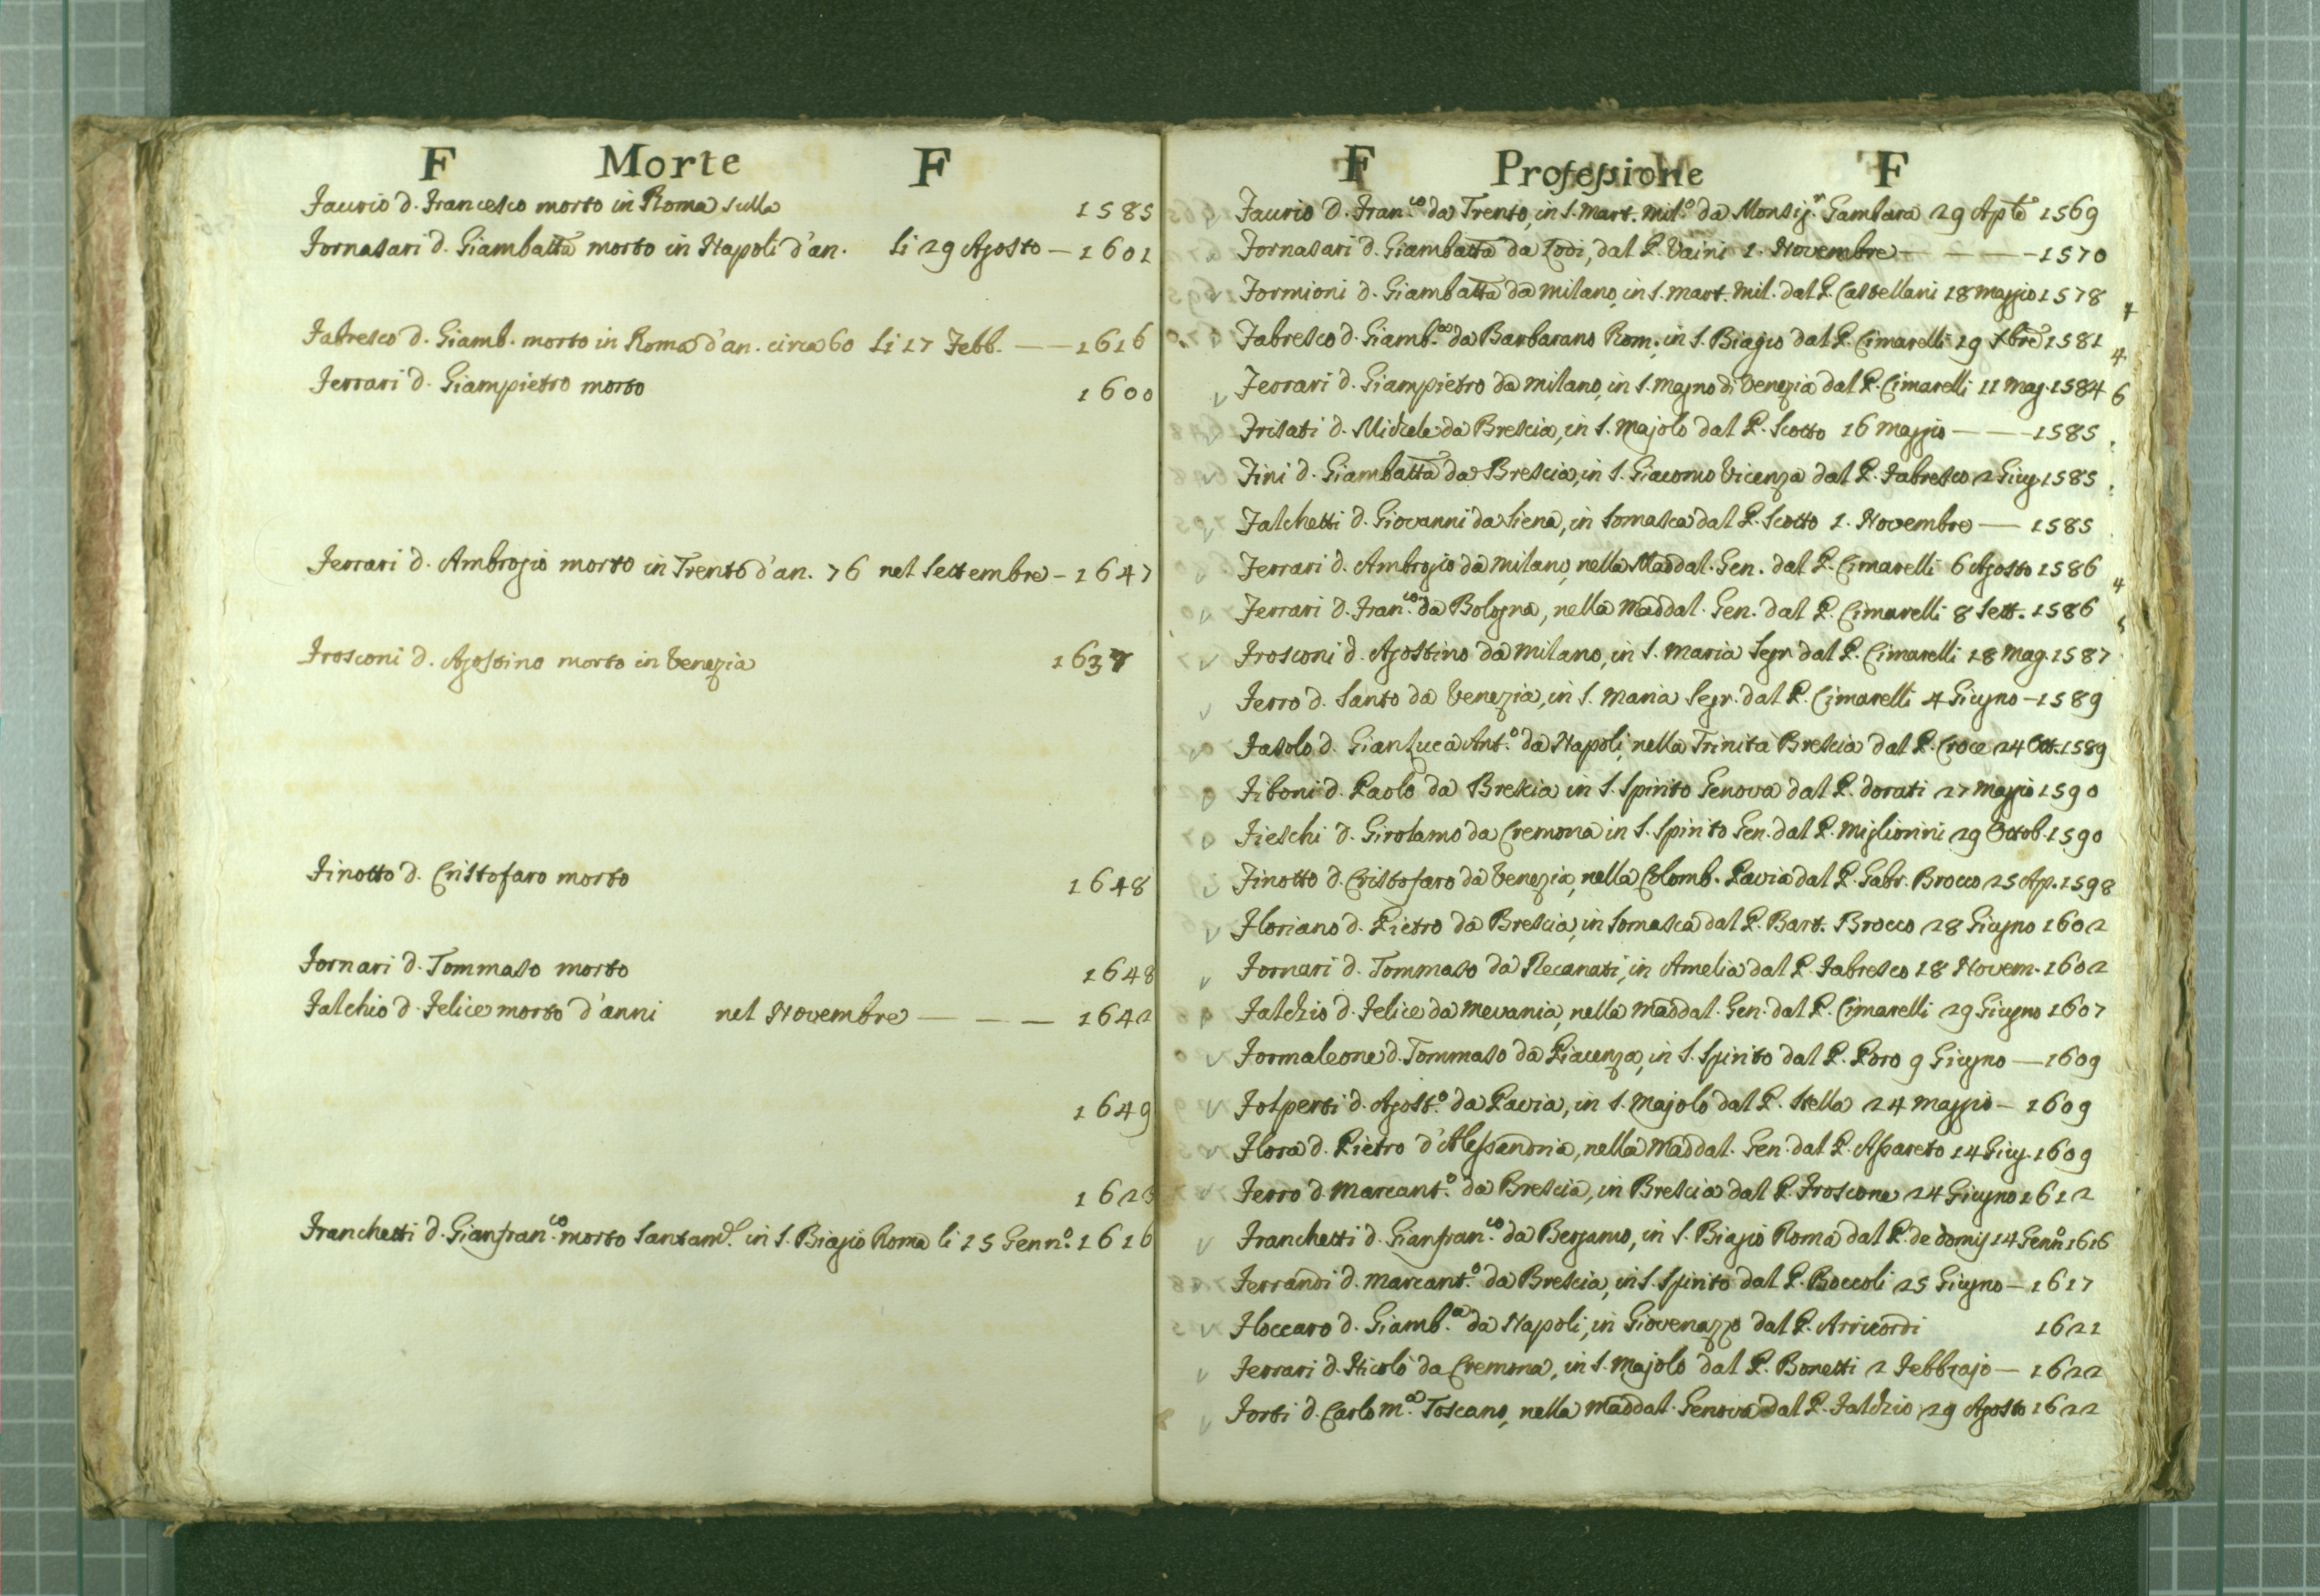 F Morte F
Faurio d. Francesco morto in Roma sulla 1585
Fornasari d. Giambatta morto in Napoli d'an. li 29 Agosto — 1601
Fabresco d. Giamb. morto in Roma d'an. circa 60 li 17 Febb. — — 1616
Ferrari d. Giampietro morto 1600
Ferrari d. Ambrogio morto in Trento d'an. 76 nel Settembre — 1647
Frosconi d. Agostino morto in Venezia 1637
Finotto d. Cristofaro morto 1648
Fornari d. Tommaso morto 1648
Falchio d. Felice morto d'anni nel Novembre — — — 1642
1649
162
Franchetti d. Gianfran.co morto santam.e in S. Biagio Roma li 15 Genn.o 1616
F Professione F
Faurio d. Fran.co da Trento, in S. Mart. Mil.o da Monsig.r Gambara 29 Aple 1569
Fornasari d. Giambatta da Lodi, dal P. Vaini 1. Novembre — — — 1570
Formioni d. Giambatta da Milano, in S. Mart. Mil. dal P. Castellani 18 Maggio 1578
Fabresco d. Giamb.a da Barbarano Rom. in S. Biagio dal P. Cimarelli 19 Xbre 1581 4
Ferrari d. Giampietro da Milano, in S. Magno di Venezia dal P. Cimarelli 11 Mag. 1584 6
Frisati d. Michele da Brescia, in S. Majolo dal P. Scotto 16 Maggio — — 1585
Fini d. Giambatta da Brescia, in S. Giacomo Vicenza dal P. Fabresco 2 Giug. 1585
Falchetti d. Giovanni da Siena, in Somasca dal P. Scotto 1. Novembre — 1585
Ferrari d. Ambrogio da Milano, nella Maddal. Gen. dal P. Cimarelli 6 Agosto 1586 4
Ferrari d. Fran.co da Bologna, nella Maddal. Gen. dal P. Cimarelli 8 Sett. 1586
Frosconi d. Agostino da Milano, in S. Maria Segr. dal P. Cimarelli 18 Mag. 1587
Ferro d. Santo da Venezia, in S. Maria Segr. dal P. Cimarelli 4 Giugno — 1589
Fasolo d. Gianluca Ant.o da Napoli, nella Trinita Brescia dal P. Croce 24 Ott. 1589
Fiboni d. Paolo da Brescia in S. Spirito Genova dal P. Dorati 27 Maggio 1590
Fieschi d. Girolamo da Cremona in S. Spirito Gen. dal P. Migliorini 29 Ottob. 1590
Finotto d. Cristofaro da Venezia, nella Colomb. Pavia dal P. Gabr. Brocco 25 Ap. 1598
Floriano d. Pietro da Brescia, in Somasca dal P. Bart. Brocco 28 Giugno 1602
Fornari d. Tommaso da Recanati, in Amelia dal P. Fabresco 18 Novem. 1602
Falchio d. Felice da Mevania, nella Maddal. Gen. dal P. Cimarelli 29 Giugno 1607
Formaleone d. Tommaso da Piacenza, in S. Spirito dal P. Poro 9 Giugno — 1609
Folperti d. Agost.o da Pavia, in S. Majolo dal P. Stella 24 Maggio — 1609
Flora d. Pietro d'Alessandria, nella Maddal. Gen. dal P. Assareto 14 Giug. 1609
Ferro d. Marcant.o da Brescia, in Brescia dal P. Froscone 24 Giugno 1612
Franchetti d. Gianfran.co da Bergamo, in S. Biagio Roma dal P. de Domij 14 Genn.o 1616
Ferrandi d. Marcant.o da Brescia, in S. Spirito dal P. Boccoli 25 Giugno — 1617
Floccaro d. Giamb.a da Napoli, in Giovenazzo dal P. Arricordi 1621
Ferrari d. Nicolò da Cremona, in S. Majolo dal P. Bonetti 2 Febbrajo — 1622
Forti d. Carlo M.a Toscano, nella Maddal. Genova dal P. Falchio 29 Agosto 1622